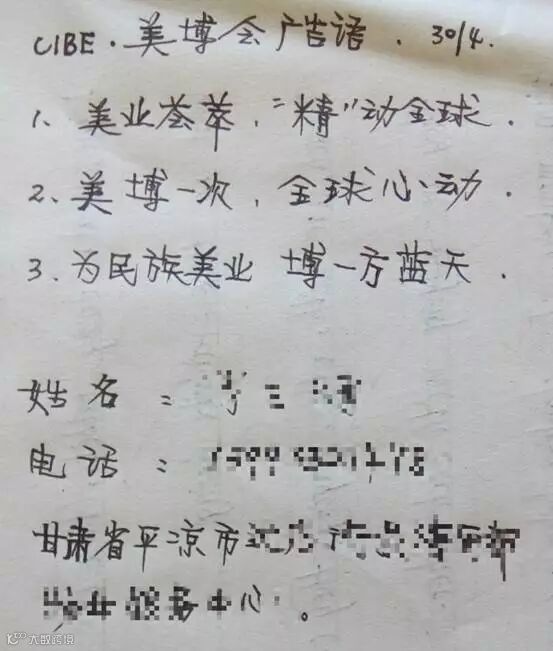 CIBE·美博会广告语. 30/4.
1、美业荟萃，“精”动全球.
2、美博一次，全球心动.
3.为民族美业 博一方蓝天.
姓名：
电话：
甘肃省平凉市
中心。
大数跨境